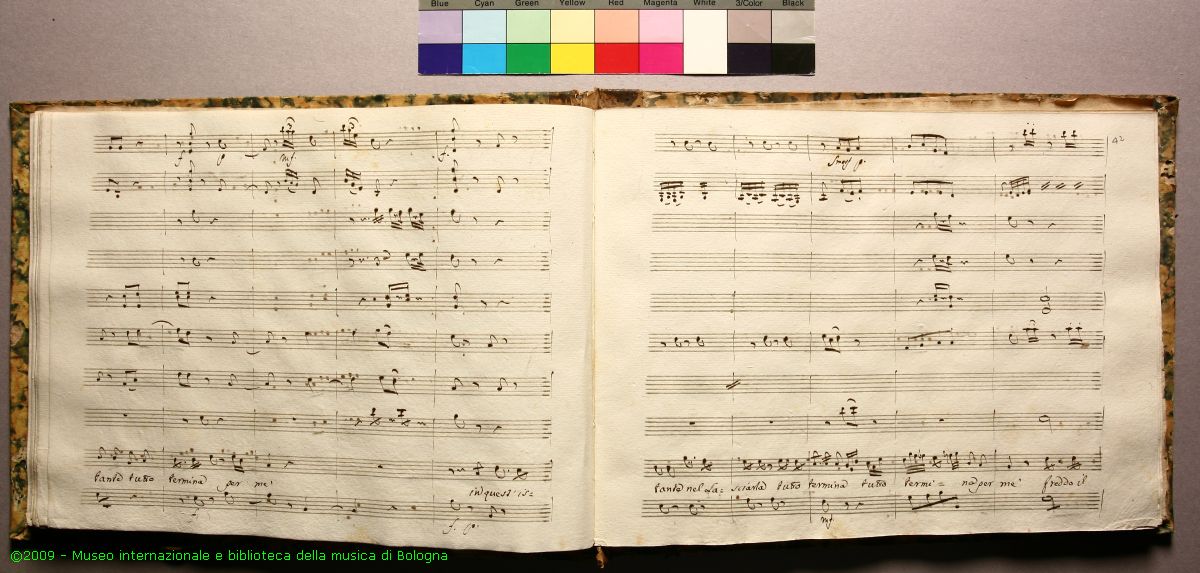 Blue Cyan Green Yellow Red Magenta White 3/Color Black
42
f. p mf. f.
tanto tutto termina per me
in quest' is=
f. p.
smorf p.
tanto nel La= sciarla tutto termina tutto termi= na per me freddo il
mf.
©2009 - Museo internazionale e biblioteca della musica di Bologna